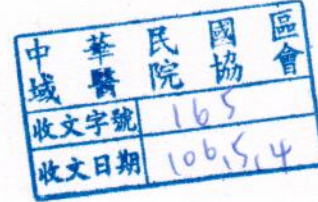 中華民國區
域醫院協會
收文字號 165
收文日期 106.5.4